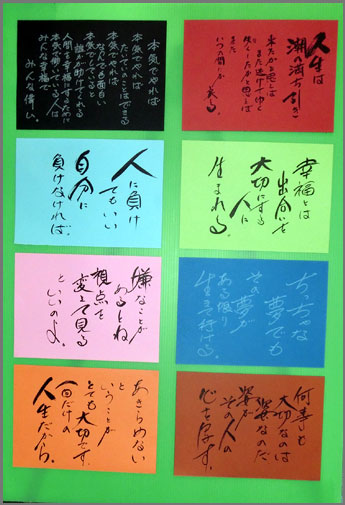 人生は
潮の満ち引き
来たかと思えば
また逃げてゆく
また
いつの間にか
来る
本気でやれば
本気でやれば
たいていのことはできる
本気でやれば
なんでも面白い
本気でしていると
誰かが助けてくれる
人間を幸福にするために
本気で働いている人は
みんな幸福で
みんな偉い。
幸福とは
出会いを
大切にする
人に
生まれる。
人に負け
てもいい
自分に
負けなければ。
ちっちゃな
夢でも
その夢が
ある限り
生きて行ける。
嫌なことが
あるとね
視点を
変えて見る
といいのよ。
何事も
大切なのは
姿なのだ
姿が
その人の
心を写す。
あきらめない
と
いうことが
とても大切です。
一回だけの
人生だから。